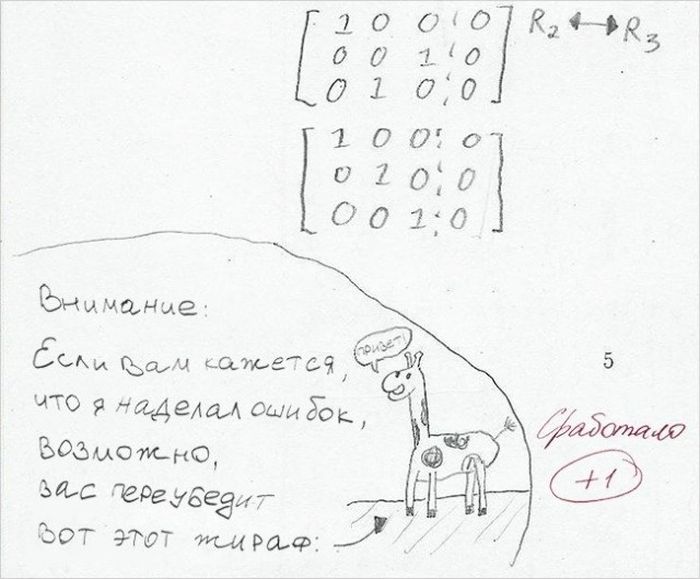 1 0 0 ¦ 0 R2 ↔ R3
0 0 1 ¦ 0
0 1 0 ¦ 0
1 0 0 ¦ 0
0 1 0 ¦ 0
0 0 1 ¦ 0
Внимание:
Если вам кажется,
что я наделал ошибок,
возможно,
вас переубедит
вот этот жираф:
ПРИВЕТ!
5
Сработало
+1